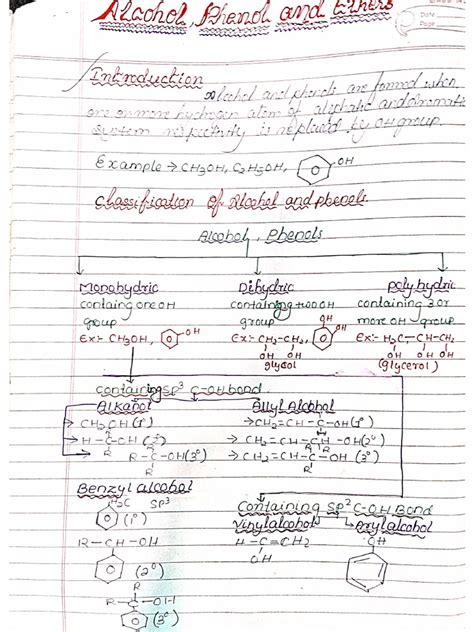 Alcohol, Phenol and Ethers
Date
Page
Introduction
Alcohol and phenols are formed when
one or more hydrogen atom of aliphatic and aromatic
system respectivity is replaced by OH group.
Example → CH3OH, C2H5OH, OH
Classification of Alcohol and phenols.
Alcohol, Phenols
Monohydric Dihydric polyhydric
containg one OH containing two OH containing 3 or
group group OH more OH-group
Ex:- CH3OH, OH Ex:- CH2-CH2, OH Ex:- H2C-CH-CH2
OH OH OH OH OH
glycol (glycerol)
containing SP3 C-OH bond
Alkanol Allyl Alcohol
→ CH2OH (1°) → CH2=CH-C-OH (1°)
→ H-C-OH (2°) → CH2=CH-CH-OH (2°)
R R R
R-C-OH (3°) → CH2=CH-C-OH (3°)
R R'
Benzyl alcohol
H2C SP3
(1°)
Containing SP2 C-OH Bond
Vinyl alcohol Aryl alcohol
R-CH-OH H-C=CH2 OH
OH
(2°)
R
R-C-OH
(3°)